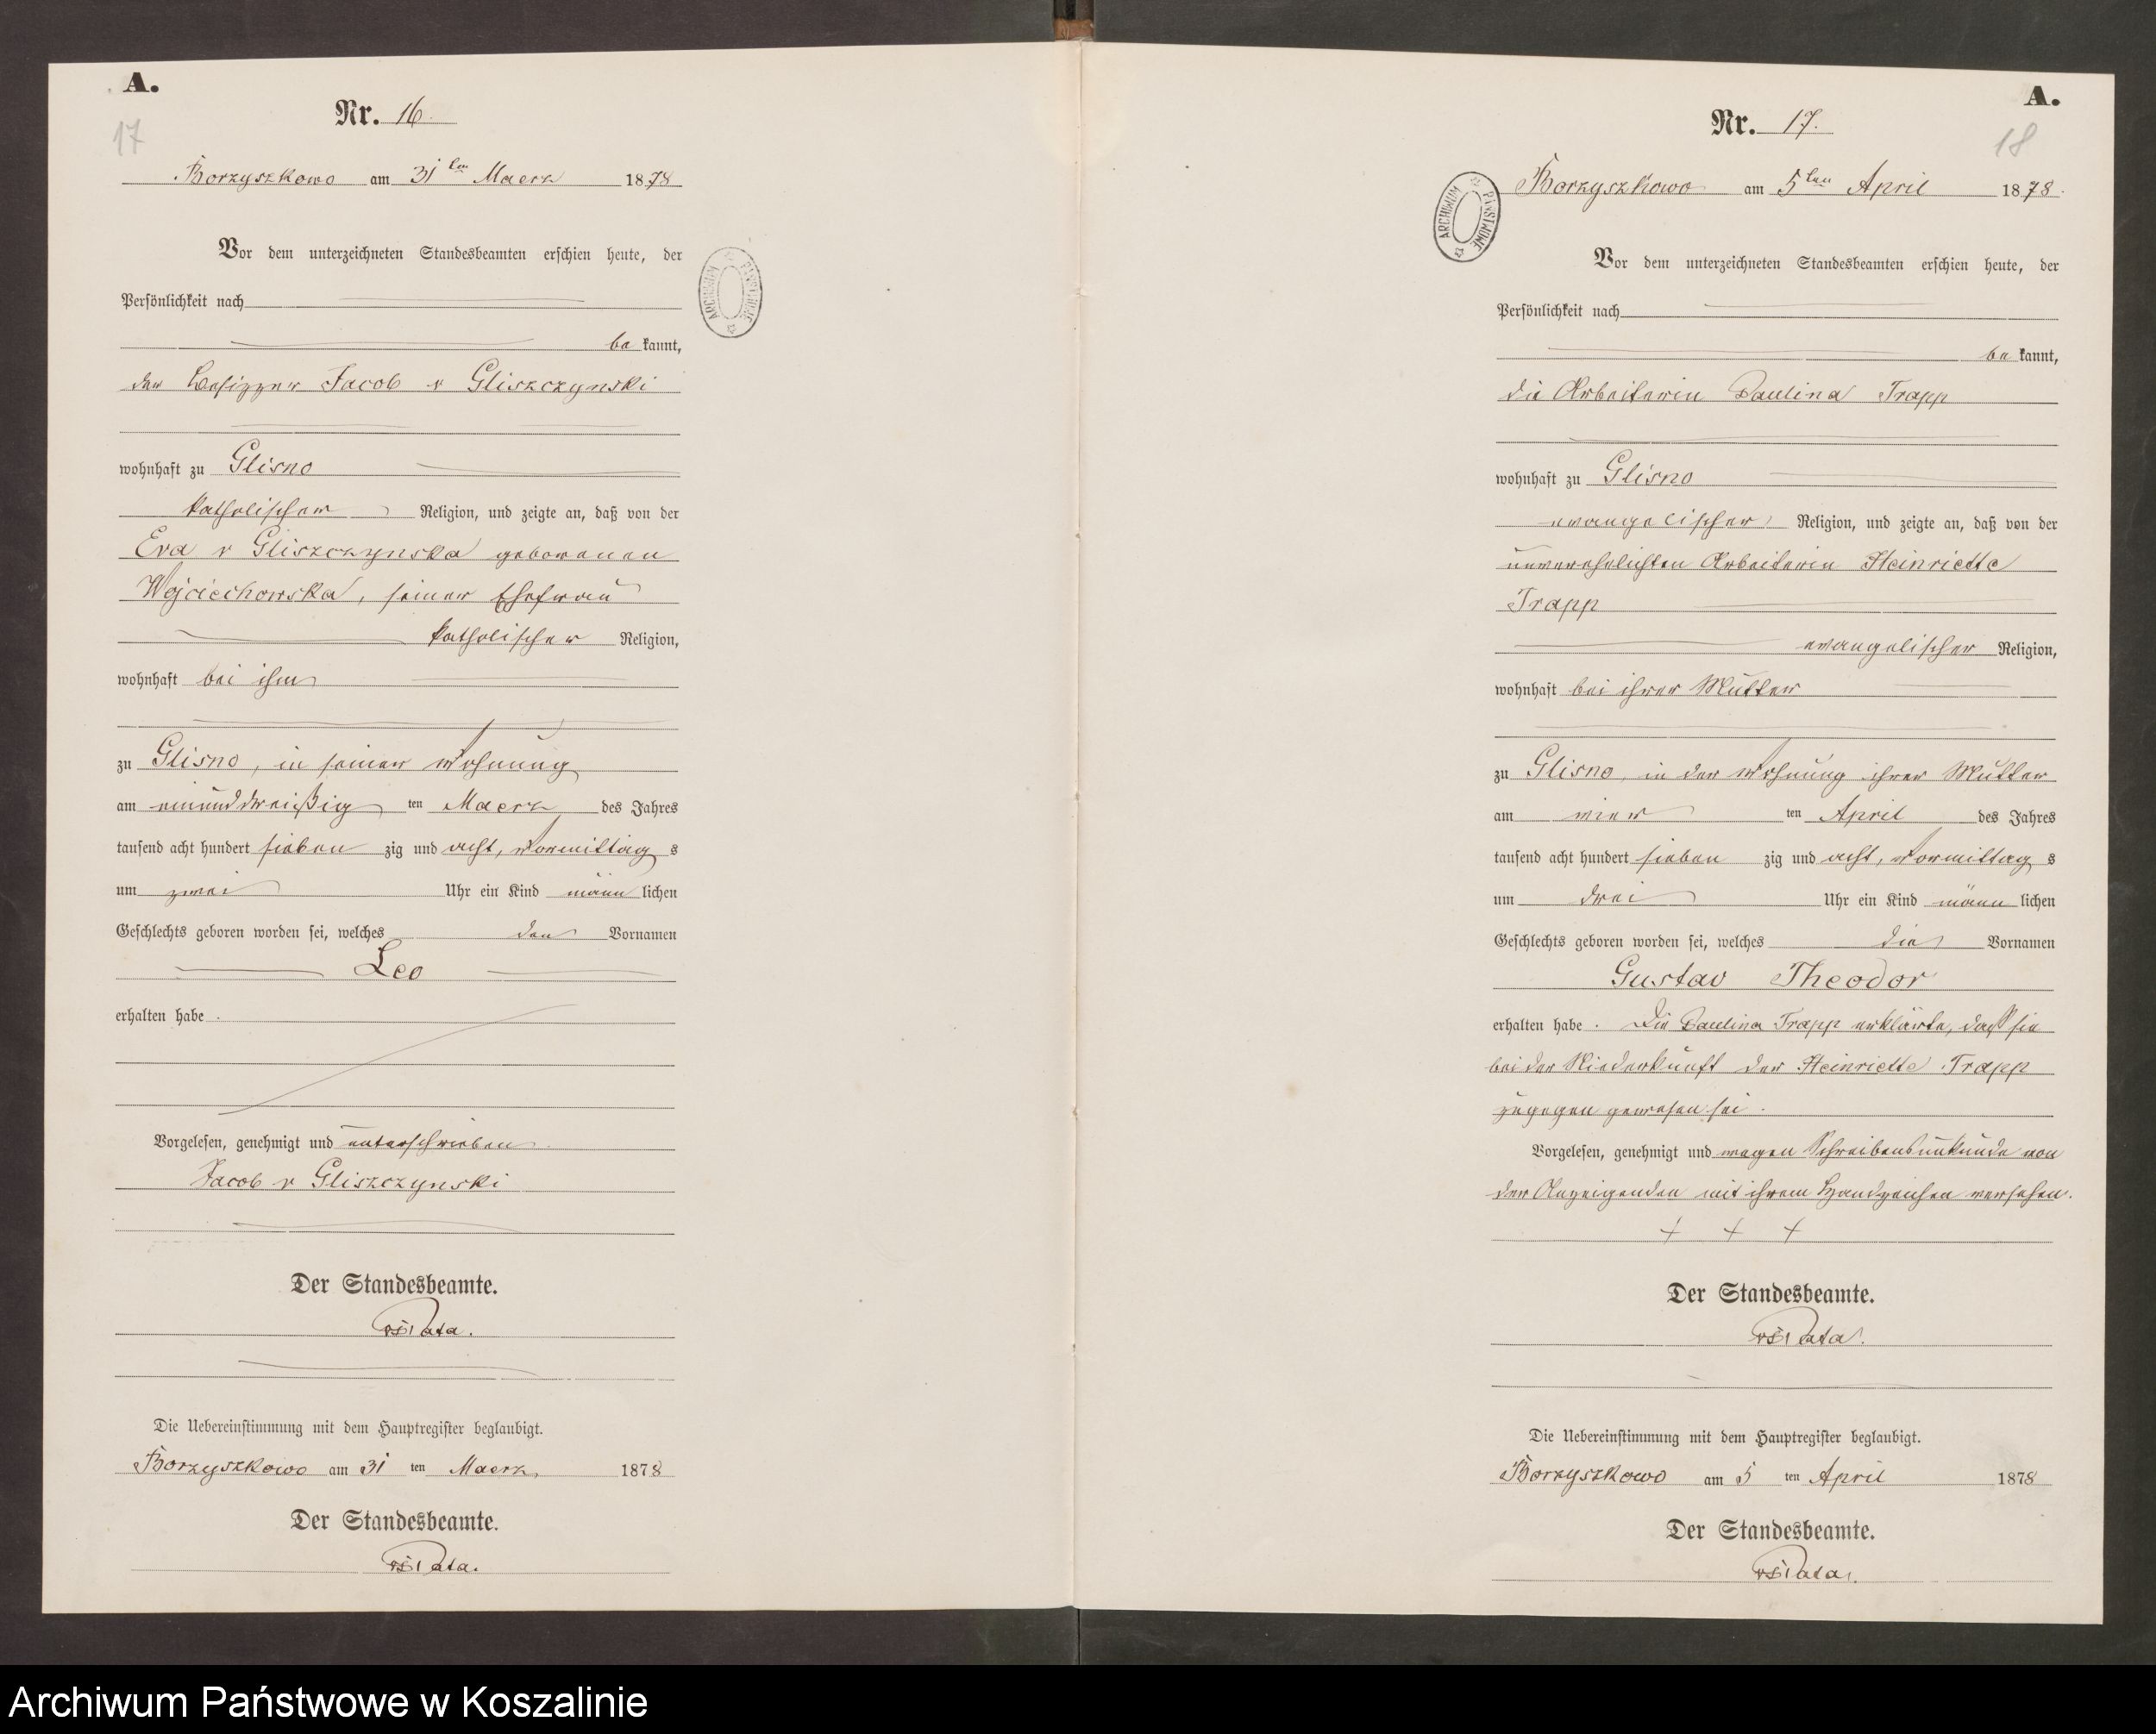 A.
Nr. 16.
17
Borzyszkowo am 31ten Maerz 1878
Vor dem unterzeichneten Standesbeamten erschien heute, der
Persönlichkeit nach
be kannt,
der Besitzer Jacob v Gliszczynski
wohnhaft zu Glisno
katholischer Religion, und zeigte an, daß von der
Eva v Gliszczynska geborenen
Wojciechowska, seiner Ehefrau
katholischer Religion,
wohnhaft bei ihm
zu Glisno, in seiner Wohnung
am einunddreißig ten Maerz des Jahres
tausend acht hundert sieben zig und acht, Vormittag s
um zwei Uhr ein Kind männ lichen
Geschlechts geboren worden sei, welches den Vornamen
Leo
erhalten habe.
Vorgelesen, genehmigt und unterschrieben
Jacob v Gliszczynski
Der Standesbeamte.
Die Uebereinstimmung mit dem Hauptregister beglaubigt.
Borzyszkowo am 31 ten Maerz 1878
Der Standesbeamte.
ARCHIWUM PAŃSTWOWE
A.
Nr. 17.
18
Borzyszkowo am 5ten April 1878.
ARCHIWUM PAŃSTWOWE
Vor dem unterzeichneten Standesbeamten erschien heute, der
Persönlichkeit nach
be kannt,
die Arbeiterin Paulina Trapp
wohnhaft zu Glisno
evangelischer Religion, und zeigte an, daß von der
unverehelichten Arbeiterin Heinriette
Trapp
evangelischer Religion,
wohnhaft bei ihrer Mutter
zu Glisno, in der Wohnung ihrer Mutter
am vier ten April des Jahres
tausend acht hundert sieben zig und acht, Vormittag s
um drei Uhr ein Kind männ lichen
Geschlechts geboren worden sei, welches die Vornamen
Gustav Theodor
erhalten habe. Die Paulina Trapp erklärte, daß sie
bei der Niederkunft der Heinriette Trapp
zugegen gewesen sei.
Vorgelesen, genehmigt und wegen Schreibensunkunde von
der Anzeigenden mit ihrem Handzeichen versehen.
+ + +
Der Standesbeamte.
Die Uebereinstimmung mit dem Hauptregister beglaubigt.
Borzyszkowo am 5 ten April 1878
Der Standesbeamte.
Archiwum Państwowe w Koszalinie